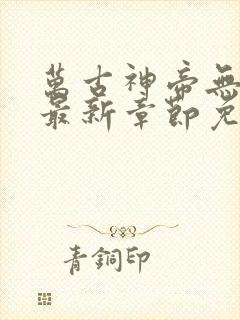 萬古神帝無
最新章節免
青銅印